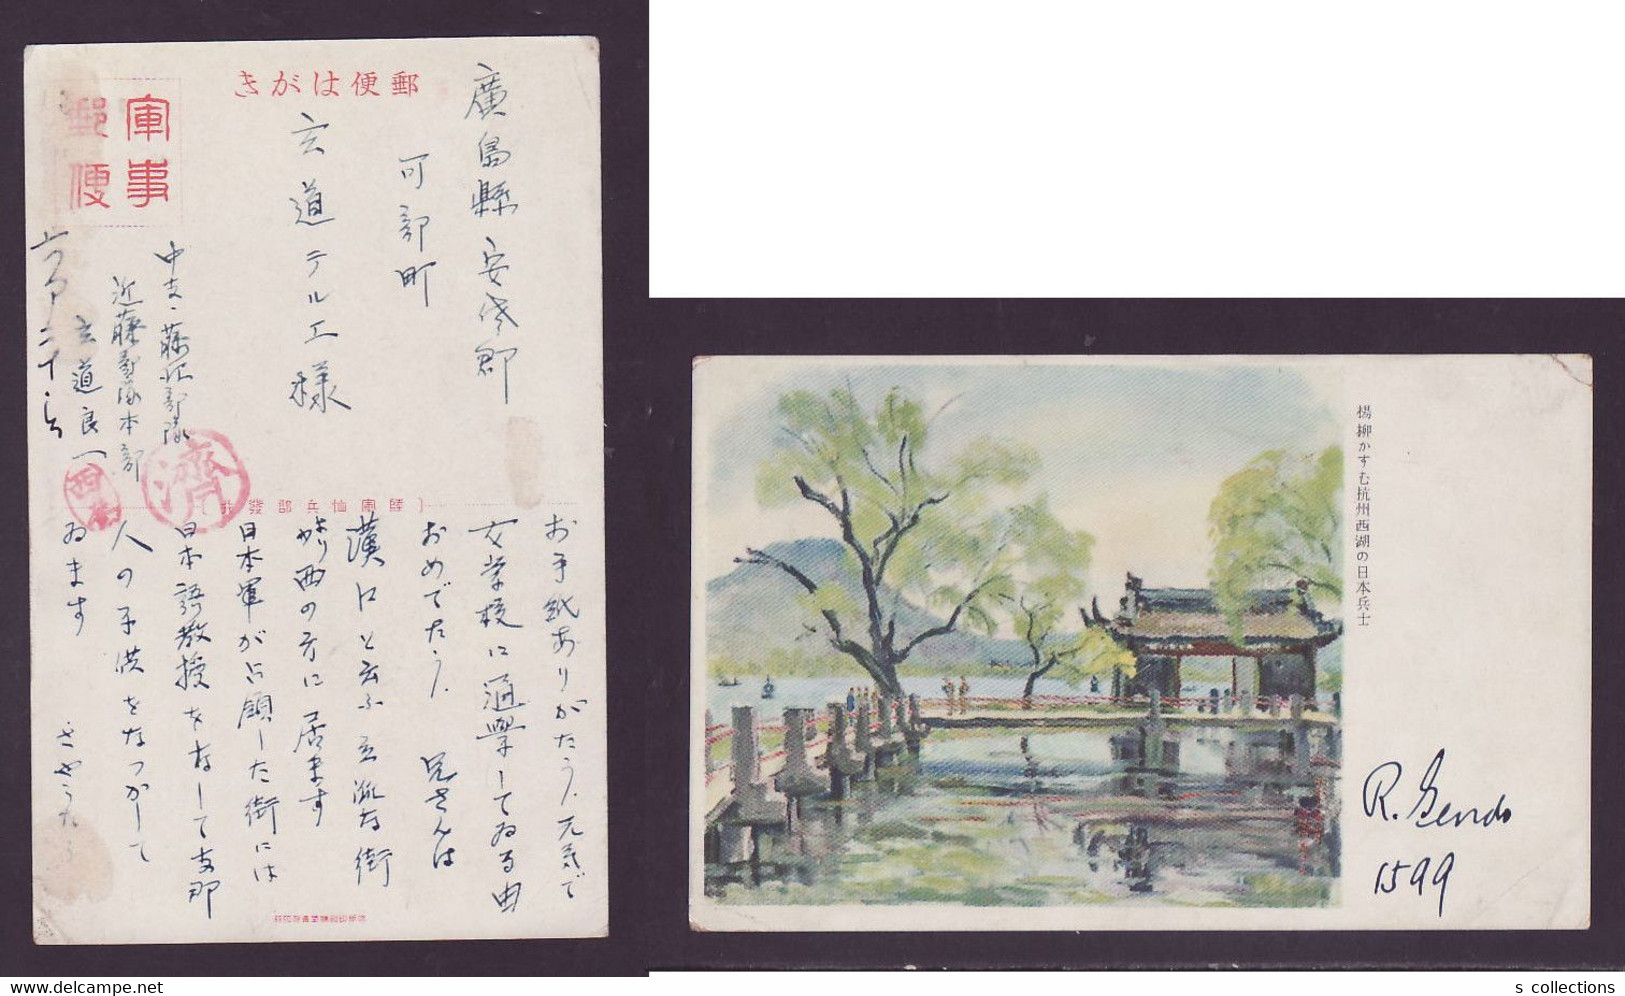 郵便はがき
軍事
郵便
廣島縣安佐郡
可部町
玄道テルエ様
中支・藤
近藤部隊本部
玄道良一
濟
陸軍恤兵部發行
お手紙ありがたう、元気で
女学校に通學してゐる由
おめでたう、兄さんは
漢口と云ふ立派な街
より西の方に居ます
日本軍が占領した街には
日本語教授をなして支那
人の子供をなつかして
ゐます さやうなら
楊柳かすむ杭州西湖の日本兵士
R. Gendo
1599
s collections
delcampe.net